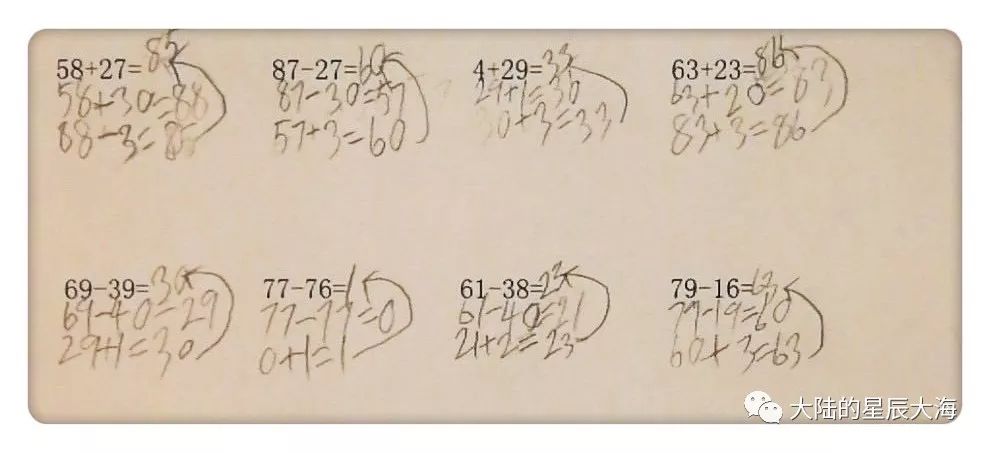 58+27=85
58+30=88
88-3=85
87-27=60
87-30=57
57+3=60
4+29=33
29+1=30
30+3=33
63+23=86
63+20=83
83+3=86
69-39=30
69-40=29
29+1=30
77-76=1
77-77=0
0+1=1
61-38=23
61-40=21
21+2=23
79-16=63
79-19=60
60+3=63
大陆的星辰大海